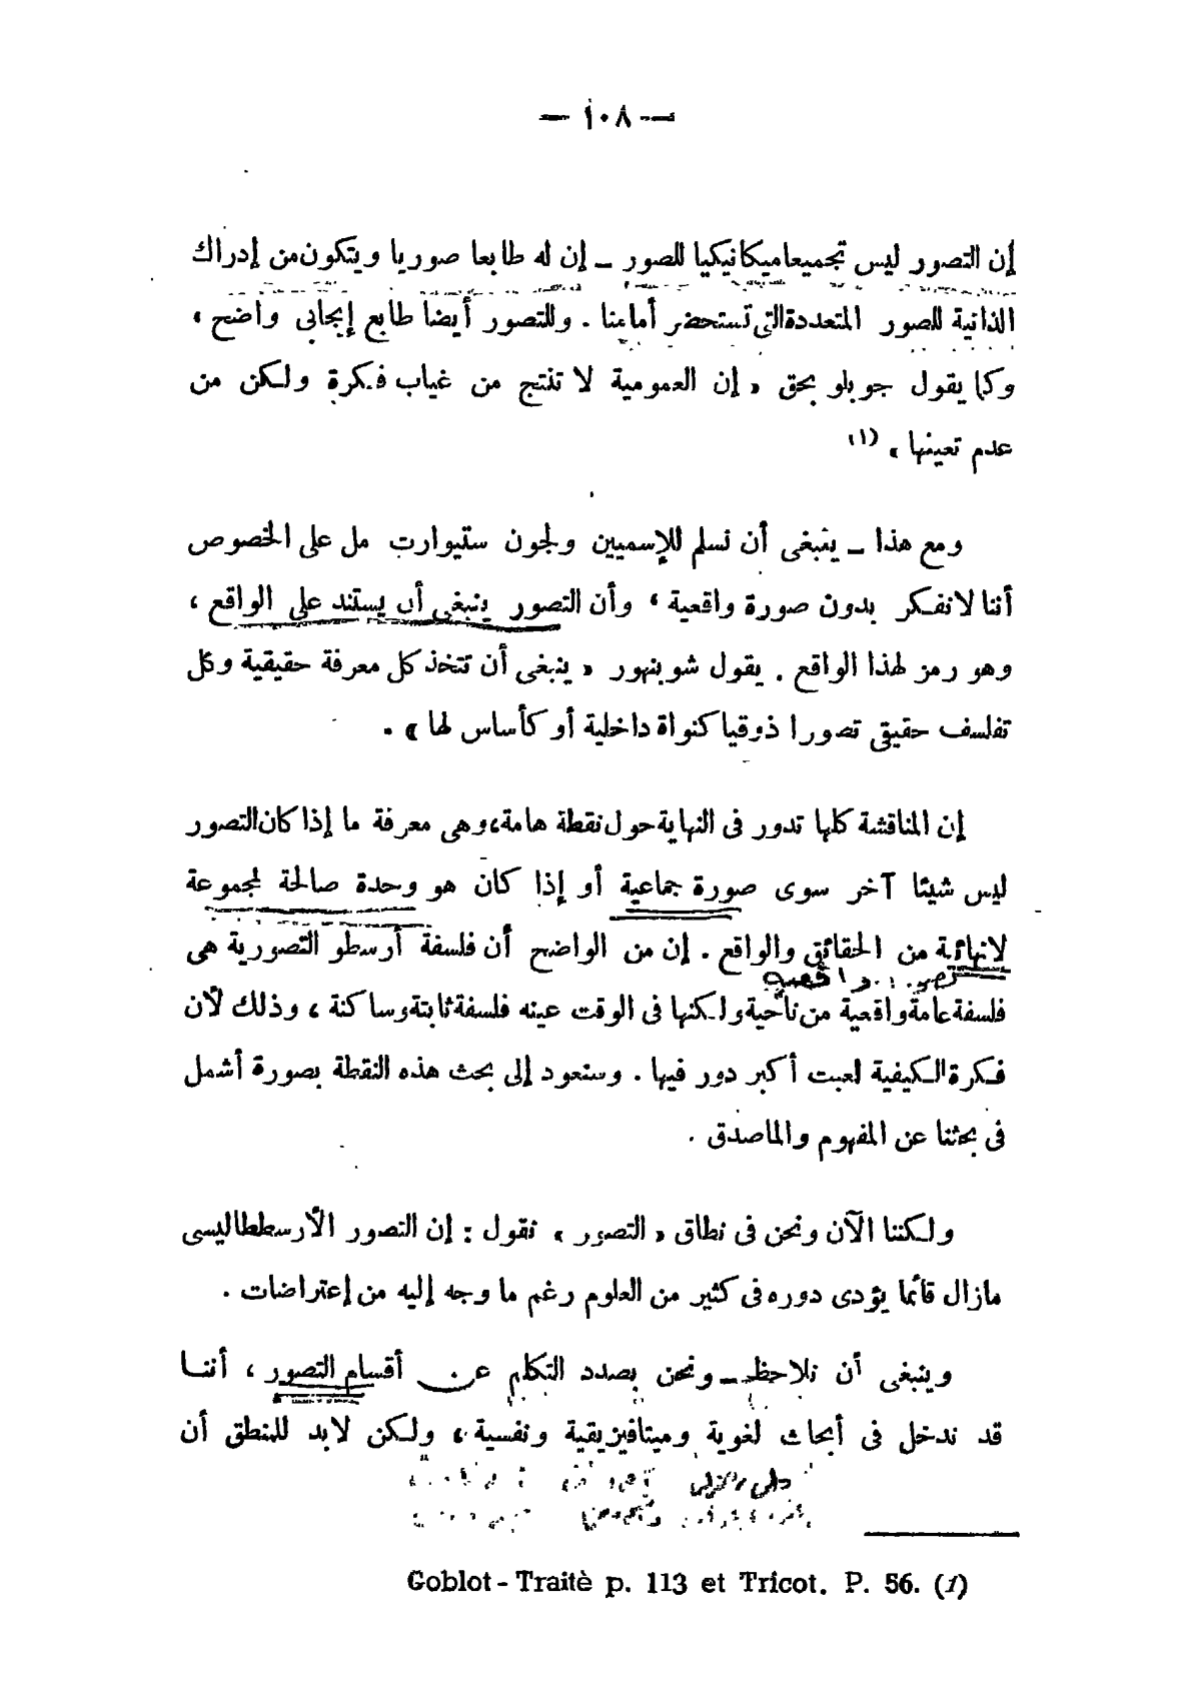 — ١٠٨ —
إن التصور ليس تجميعا ميكانيكيا للصور ــ إن له طابعا صوريا ويتكون من إدراك
الذاتية للصور المتعددة التى تستحضر أمامنا . وللتصور أيضا طابع إيجابى واضح ،
وكما يقول جوبلو بحق « إن العمومية لا تنتج من غياب فكرة ولكن من
عدم تعينها » (١)
ومع هذا ــ ينبغى أن نسلم للإسميين ولجون ستيوارت مل على الخصوص
أننا لا نفكر بدون صورة واقعية ، وأن التصور ينبغى أن يستند على الواقع ،
وهو رمز لهذا الواقع . يقول شوبنهور « ينبغى أن تتخذ كل معرفة حقيقية وكل
تفلسف حقيقى تصورا ذوقيا كنواة داخلية أو كأساس لها » .
إن المناقشة كلها تدور فى النهاية حول نقطة هامة، وهى معرفة ما إذا كان التصور
ليس شيئا آخر سوى صورة جماعية أو إذا كان هو وحدة صالحة لمجموعة
لانهائية من الحقائق والواقع . إن من الواضح أن فلسفة أرسطو التصورية هى
واقعية
فلسفة عامة واقعية من ناحية ولكنها فى الوقت عينه فلسفة ثابتة وساكنة ، وذلك لأن
فكرة الكيفية لعبت أكبر دور فيها . وسنعود إلى بحث هذه النقطة بصورة أشمل
فى بحثنا عن المفهوم والماصدق .
ولكننا الآن ونحن فى نطاق « التصور » نقول : إن التصور الأرسططاليسى
مازال قائما يؤدى دوره فى كثير من العلوم رغم ما وجه إليه من إعتراضات .
وينبغى أن نلاحظ ــ ونحن بصدد التكلم عن أقسام التصور ، أننا
قد ندخل فى أبحاث لغوية وميتافيزيقية ونفسية ، ولكن لابد للمنطق أن
Goblot - Traitè p. 113 et Tricot. P. 56. (1)